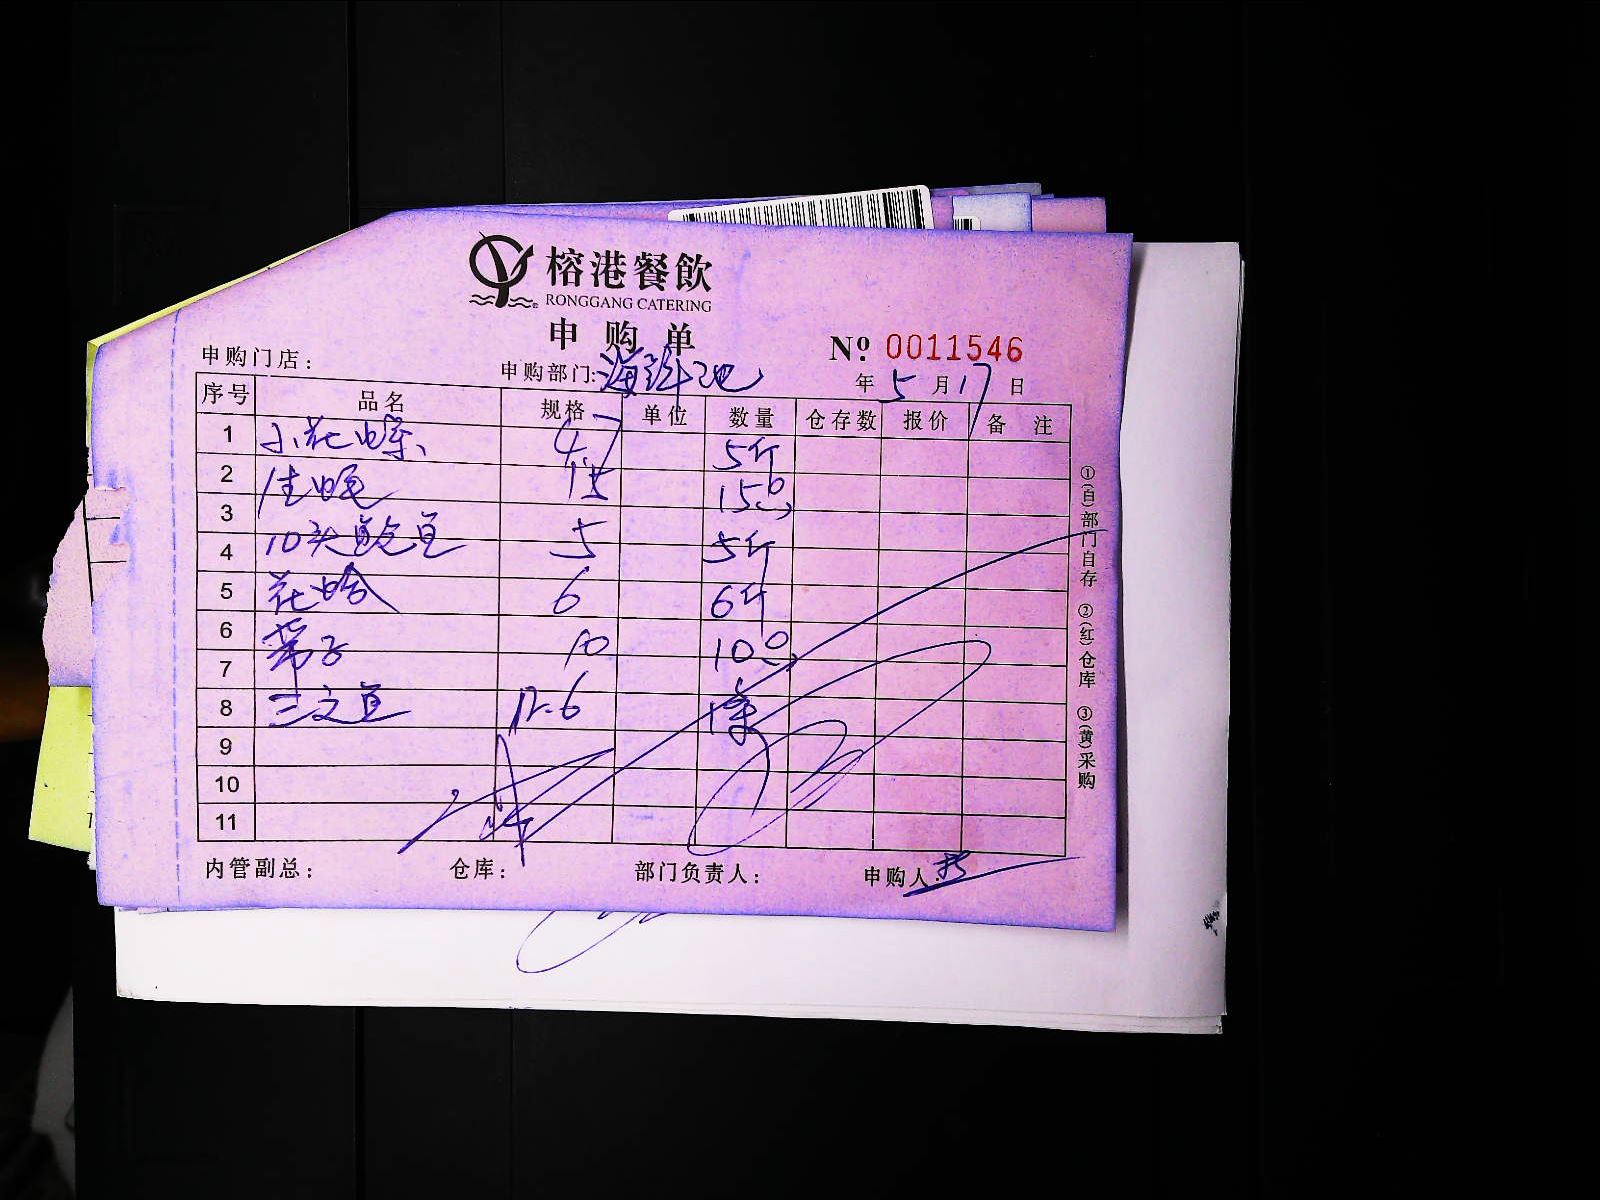 榕港餐飲
RONGGANG CATERING
申购单
Nº 0011546
申购门店：
申购部门：海鲜池
年 5 月 17 日
序号 品名 规格 单位 数量 仓存数 报价 备注
1 小花螺 4.7 5斤
2 生蚝 15 15个
3 10头鲍鱼 5 5斤
4 花蛤 6 6斤
5 带子 10 10个
6 三文鱼 12.6 1条
7
8
9
10
11
①(白)部门自存 ②(红)仓库 ③(黄)采购
内管副总： 仓库： 部门负责人： 申购人：